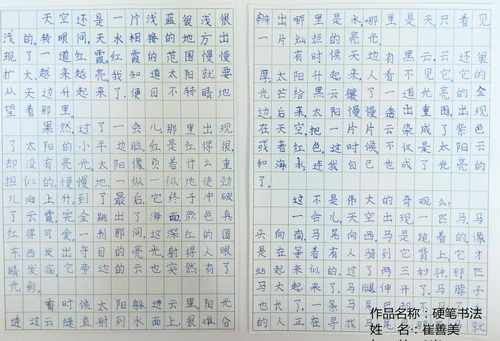 天空还是一片浅蓝很浅很
浅的。转眼间，天水相接的地方出
现了一道红霞。红霞的范围慢慢
扩大，越来越亮。我知道太阳就要
从天边升起来了，便目不转睛地
望着那里。
果然，过了一会儿，那里出现
了太阳的小半边脸，红是红得很，
却没有亮光。太阳像负着什么重
担似的，慢慢地，一纵一纵地使劲
儿向上升。到了最后，它终于冲破
了云霞，完全跳出了海面，颜色真
红得可爱。一刹那间，这深红的圆
东西发出夺目的亮光，射得人眼
睛发痛。它旁边的云也突然有了
光彩。
有时候太阳躲进云里，阳光
透过云缝直射到水面上，很难分
辨出哪里是水，哪里是天，只看见
一片灿烂的亮光。
有时候天边有黑云，云还很
厚。太阳升起来，人看不见它。它的
光芒给黑云镶了一道光亮的金
边。后来，太阳慢慢透出重围，出现
在天空，把一片片云染成了紫色
或者红色。这时候，不仅是太阳、云
和海水，连我自己也成了光亮的
了。
这不是伟大的奇观么？
一会儿，天空出现一匹马，马
头向南，马尾向西。马是跪着的，像
是在等着有人骑到它背上，它才
站起来似的。过了两三秒钟，那匹
马起来了，马腿伸开了，马脖子
也长了，一条马尾巴
的人正在寻找马尾巴 就
作品名称：硬笔书法
姓 名：崔善美